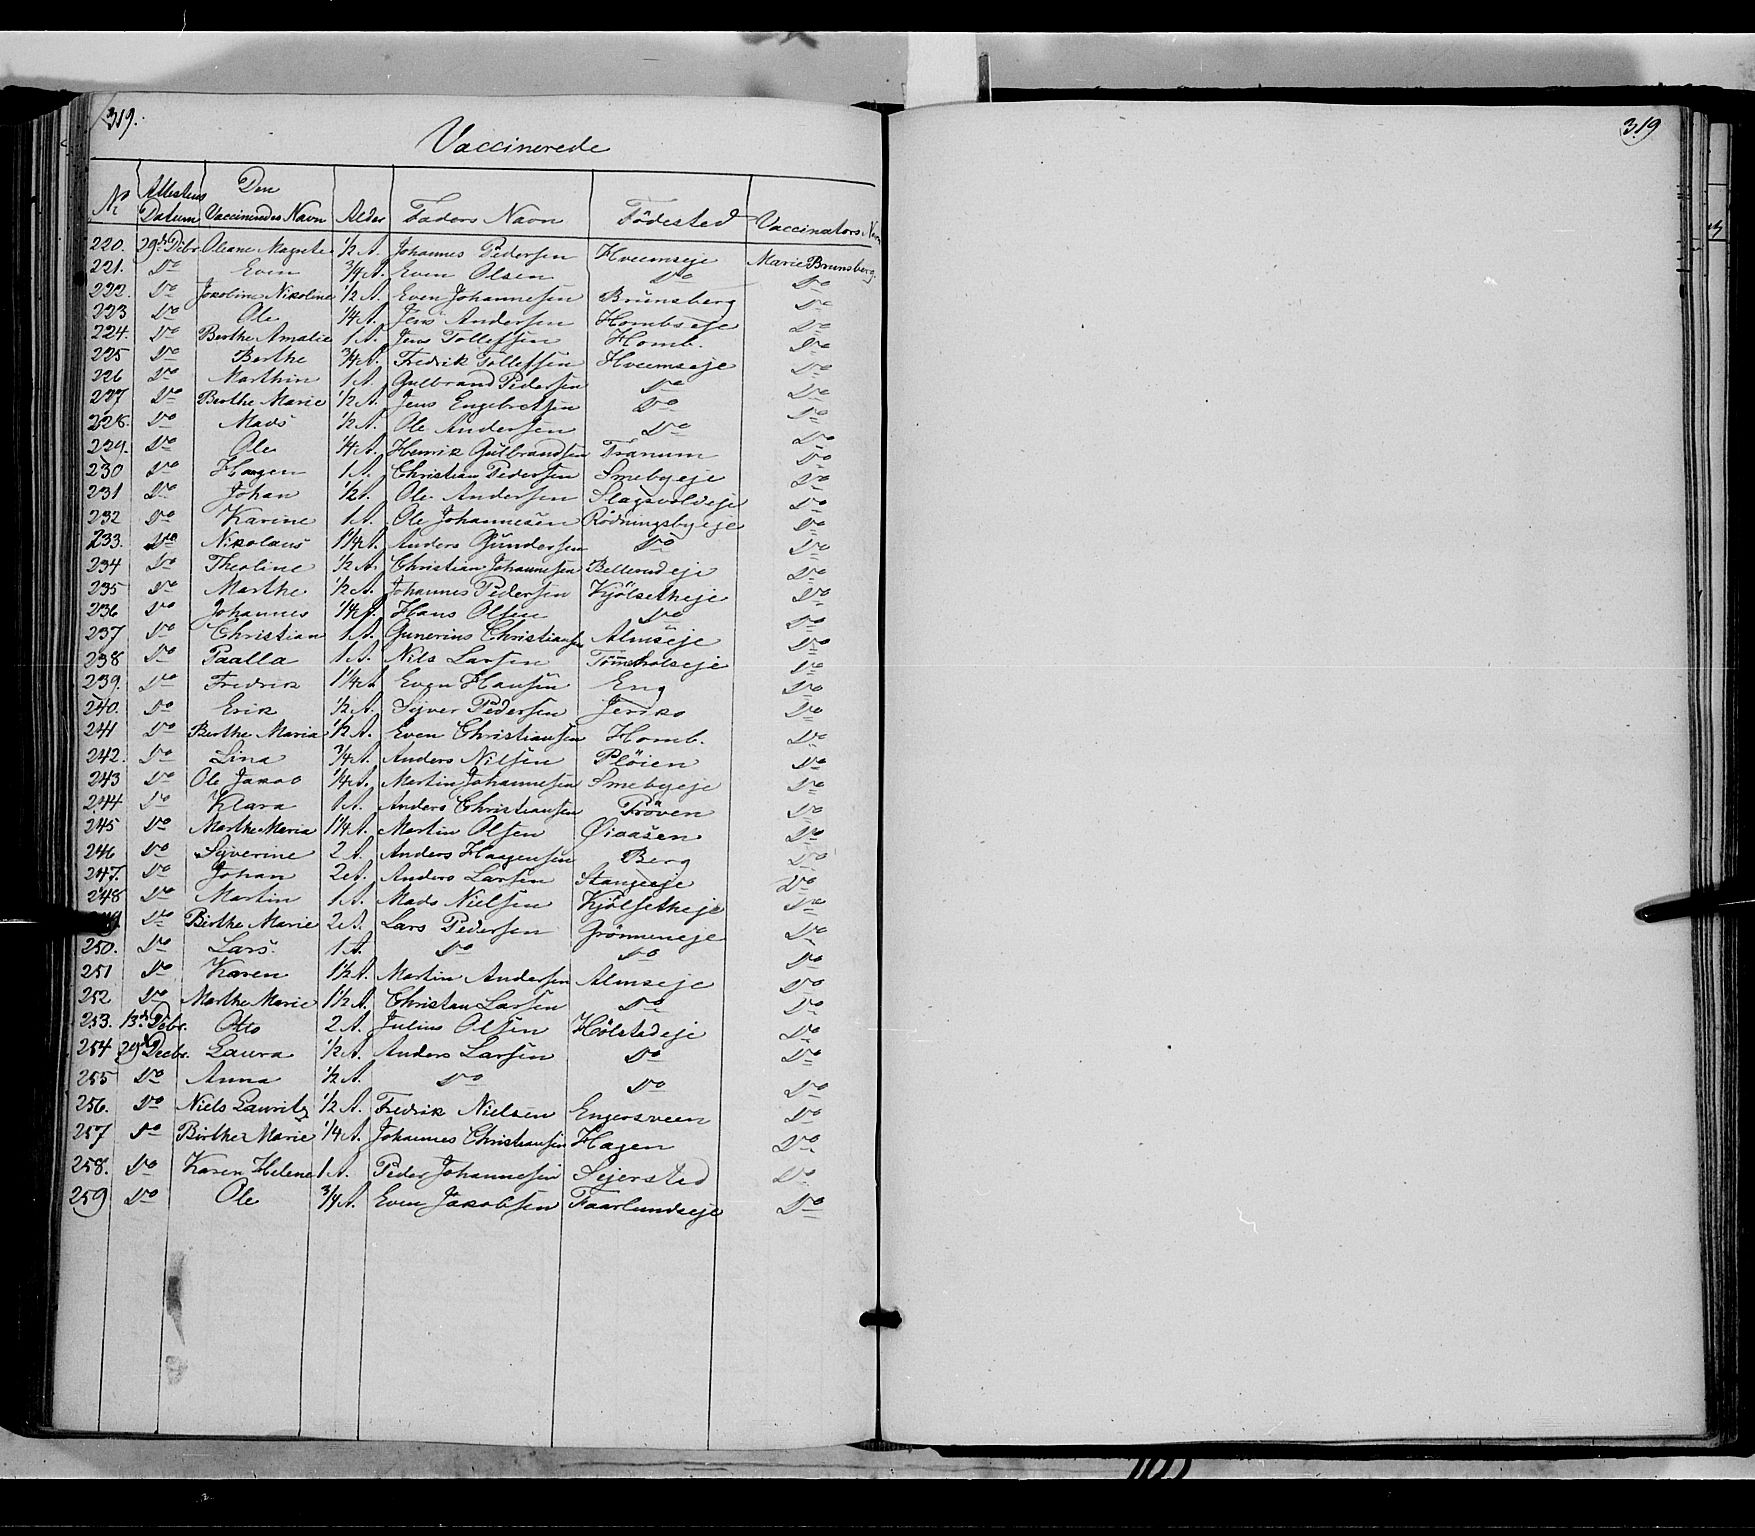 319.
Vaccinerede
No Attestens Datum Den Vaccineredes Navn Alder Faders Navn Födested Vaccinators Navn
220. 29de Debr. Oleane Magrete 1/2 A. Johannes Pedersen Hveemseje Marie Brunsberg.
221. Do Even 3/4 A. Even Olsen Do Do
222. Do Josoline Nikoline 1/2 A. Even Johannesen Brunsberg Do
223 Do Ole 1/4 A. Jens Andersen Hombseje Do
224. Do Berthe Amalie 1 A. Jens Tollefsen Homb. Do
225 Do Berthe 3/4 A. Fredrik Tollefsen Hveemseje Do
226 Do Marthin 1 A. Gulbrand Pedersen Do Do
227 Do Berthe Marie 1/2 A. Jens Engebretsen Do Do
228. Do Mads 1/2 A. Ole Andersen Do Do
229. Do Ole 1/4 A. Henrik Gulbrandsen Tranum Do
230 Do Haagen 1 A. Christian Pedersen Smebyeje Do
231 Do Johan 1/2 A. Ole Andersen Slagsvoldeje Do
232 Do Karine 1 A. Ole Johannesen Rödningsbyeje Do
233. Do Nikolaus 1 1/4 A. Anders Gundersen Do Do
234 Do Theoline 1/2 A. Christian Johannesen Bellerudeje Do
235 Do Marthe 1/2 A. Johannes Pedersen Kjölsetheje Do
236 Do Johannes 1/4 A. Hans Olsen Do Do
237 Do Christian 1 A. Gunerius Christiansen Almseje Do
238 Do Paalla 1 A. Nils Larsen Tömtholseje Do
239. Do Fredrik 1 1/4 A Even Hansen Eng Do
240. Do Erik 1/2 A. Sijver Pedersen Jeriko Do
241 Do Berthe Maria 1/2 A. Even Christiansen Homb. Do
242. Do Lina 3/4 A. Anders Nilsen Plöien Do
243 Do Ole Jakob 1/4 A. Martin Johannesen Smebyeje Do
244 Do Klara 1 A. Anders Christiansen Pröven Do
245 Do Marthe Maria 1 1/4 A. Martin Olsen Øiaasen Do
246 Do Sijverine 2 A. Anders Haagensen Berg Do
247. Do Johan 2 A. Anders Larsen Stangeeje Do
248 Do Martin 1 A. Mads Nielsen Kjölsetheje Do
249 Do Birthe Marie 2 A. Lars Pedersen Grönneneje Do
250. Do Lars 1 A. Do Do Do
251 Do Karen 1 1/2 A. Martin Andersen Almseje Do
252 Do Marthe Marie 1 1/2 A. Christian Larsen Do Do
253. 13de Debr. Otto 2 A. Julius Olsen Hölstadeje Do
254 29de Decbr. Laura 1/2 A. Anders Larsen Do Do
255 Do Anna 1/2 A. Do Do Do
256. Do Niels Lauritz 1/2 A. Fredrik Nielsen Engersveen Do
257 Do Birthe Marie 1/4 A. Johannes Christiansen Hagen Do
258. Do Karen Helene 1 A. Peder Johannesen Sejersted Do
259 Do Ole 3/4 A. Even Jakobsen Faarlundseje Do
319